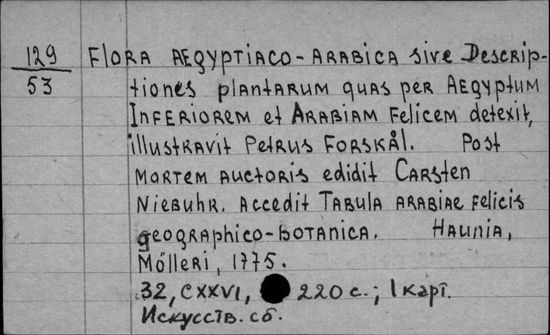 129
53
Flora Aegyptiaco-Arabica sive Descrip-
tiones plantarum quas per Aegyptum
Inferiorem et Arabiam Felicem detexit,
illustravit Petrus Forskål. Post
mortem auctoris edidit Carsten
Niebuhr. Accedit Tabula arabiae felicis
geographico-botanica. Haunia,
Mölleri, 1775.
32, CXXVI, 220 с.; 1 карт.
Искусств. сб.